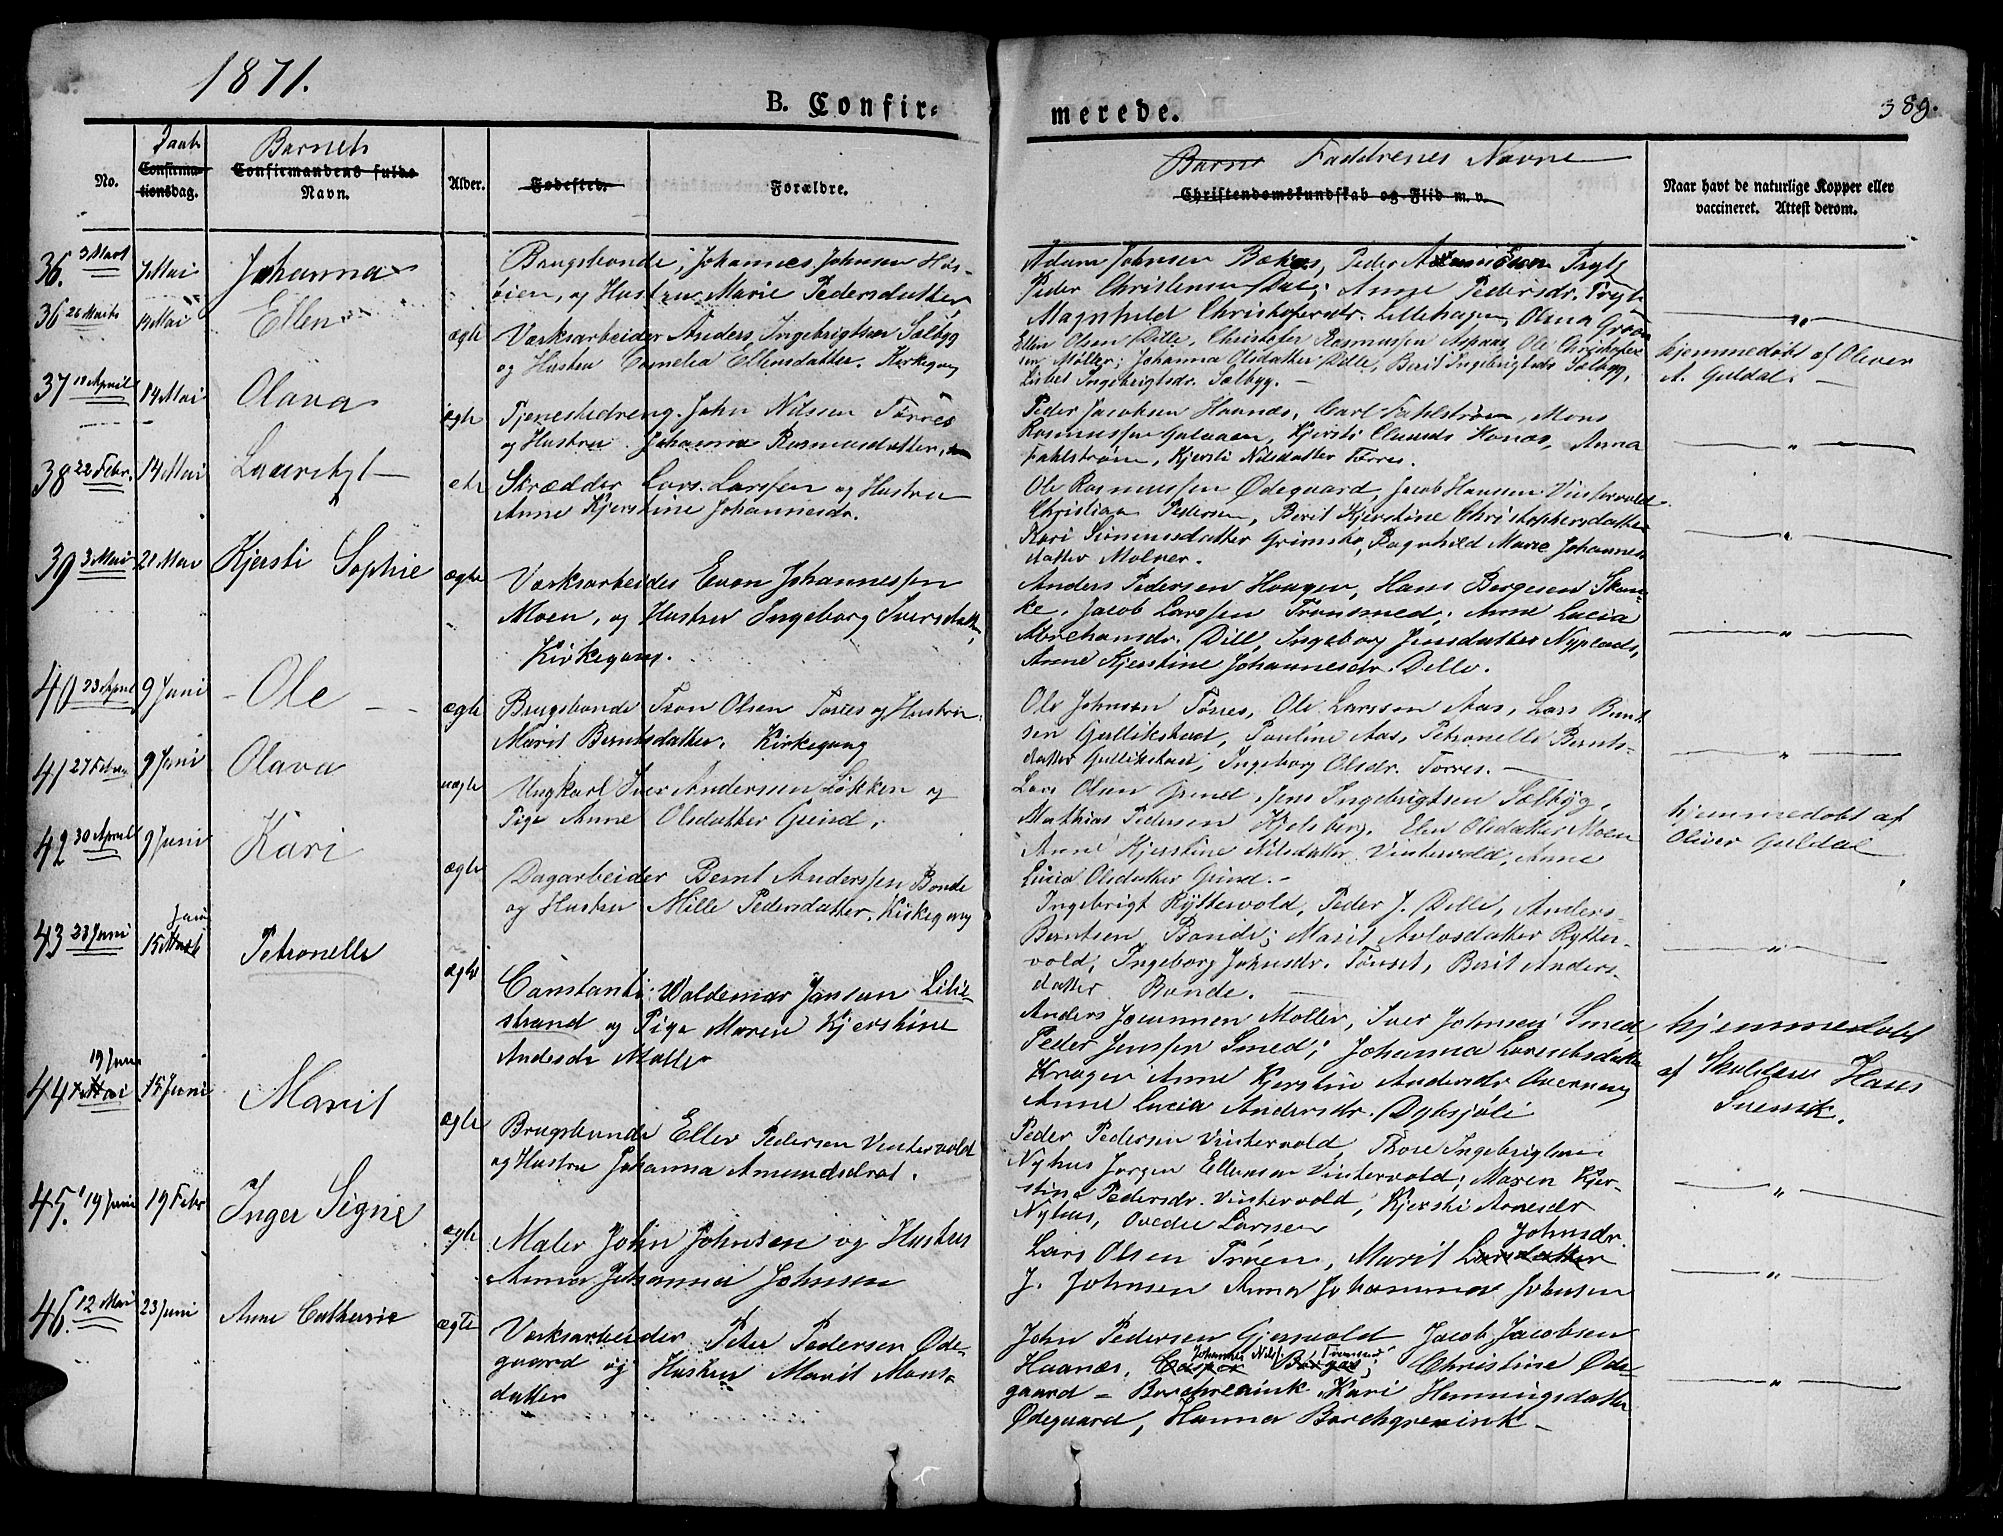 1871.
B. Confir-
merede.
389.
No.
Daab
Confirma-
tionsdag.
Barnets
Confirmandens fulde
Navn.
Alder.
Fødested.
Forældre.
Barns Faddrenes Navne
Christendomskundskab og Flid m. v.
Naar havt de naturlige Kopper eller
vaccineret. Attest derom.
36. 3 Mart 7 Mai Johanna
Brugsbonde, Johannes Johnsen Hos-
øien, og Hustru Marie Pedersdatter
Adam Johnsen Peder Trytz
Peder Christensen Anne Pedersdr. Tryts
Magnhild Christofersdr. Lillehagen, Olena
36 26 Marts 14 Mai Ellen ægte
Værksarbeider Anders Ingebrigtsen Sælbyg
og Hustru Cornelia Ellensdatter. Kirkegang
Ellen Olsen Dille, Christofer Rasmussen Aspaas, Ole Christofer
sen Møller, Johanna Olsdatter Dille, Berit Ingebrigtsdr Sælbyg,
Lisbet Ingebrigtsdr. Sælbyg. —
hjemmedøbt af Oliver
A. Guldal. —
37 18 April 14 Mai Olava ægte
Tjenestedreng John Nilssen Tørres
og Hustru Johanna Rasmusdatter,
Peder Jacobsen Haanæs, Carl Fahlstrøm, Mons
Rasmussen Galaaen, Kjersti Hanæs, Anna
Fahlstrøm, Kjersti Nilsdatter Tørres.
38 22 Febr. 14 Mai
Skrædder Lars Larssen og Hustru
Anne Kjerstine Johannesdr.
Ole Rasmussen Ødegaard, Jacob Hansen Vintervold
Christian Pedersen, Berit Kjerstine Christophersdatter
Kari Simmensdatter Grimsbo, Ragnhild Marie Johannes
datter Molner.
39 3 Mai 21 Mai Kjersti Sophie ægte
Værksarbeider Even Johannessen
Moen, og Hustru Ingeborg Iversdatter,
Kirkegang.
Anders Pedersen Haagen, Hans Bergesen Skan-
ke, Jacob Larssen Tronsmed; Anne Lucia
Abrehamsdr. Dill, Ingeborg Jensdatter Nyplads,
Anne Kjerstine Johannesdr. Dille.
40 23 April 9 Juni - Ole - - ægte
Brugsbonde Tron Olsen Tørres og Hustru
Marit Berntsdatter. Kirkegang
Ole Johnson Tørres, Ole Larsson Aas, Lars Bernt
sen Gullikstad, Pauline Aas, Petronelle Bernts-
datter Gullikstad, Ingeborg Olsdr. Tørres. —
41 27 Februar 9 Juni Olava uægte
Ungkarl Iver Andersen Løkken og
Pige Anne Olsdatter Grind,
Lars Olsen Grind, Jens Ingebrigtsen Sælbyg,
Mathias Pedersen Hjelsberg, Elen Olsdatter Moen
Anne Kjerstine Nilsdatter Vintervold, Anne
Lucia Olsdatter Grind. —
hjemmedøbt af
Oliver Guldal
42 30 April 9 Juni Kari ægte
Dagarbeider Bernt Anderssen Bonde
og Hustru Mille Pedersdatter. Kirkegang
Ingebrigt Ryttervold, Peder J. Dille, Anders
Berntsen Bonde; Marit Avlosdatter Rytter-
vold, Ingeborg Johnsdr. Tønset, Berit Anders-
datter Bonde. —
43 23 Juni Juni 15 Petronelle ægte
Constanti: Waldemar Jansen Lilie-
strand og Pige Maren Kjerstine
Andersdr Møller
Anders Møller, Iver Johnsen Smed,
Peder Jenssen Smed; Johanna Lorentsdatter
Krøger Anne Kjerstine Andersdr
Anne Lucia Andersdr. Dybsjøli
hjemmedøbt
af Skolelærer Hans
44 19 Juni 15 Juni Marit ægte
Brugsbonde Ellev Pedersen Vintervold
og Hustru Johanna Amundsdrat.
Peder Pedersen Vintervold, Thore Ingebrigtsen
Nyhus Jørgen Ellensen Vintervold; Maren Kjer-
stine Pedersdr. Vintervold, Kjersti Arnesdr
Nyhus, Ovedie Larssen
45. 19 Juni 19 Febr Inger Signe ægte
Maler John Johnsen og Hustru
Anna Johanna Johnsen
Lars Olsen Trøen, Marit Larsdatter Johnsdr.
J. Johnsen Anna Johanna Johnsen
46. 12 Mai 23 Juni Anne Catherine ægte
Værksarbeider Peter Pedersen Øde-
gaard og Hustru Marit Mons-
datter
John Pedersen Gjersvold Jacob Jacobsen
Haanæs, Casper Borgos; Johannes Nilss. Tronsmed Christine Øde-
gaard - Borchrevink, Kari Henningsdatter
Ødegaard, Hanna Borchgrevink -